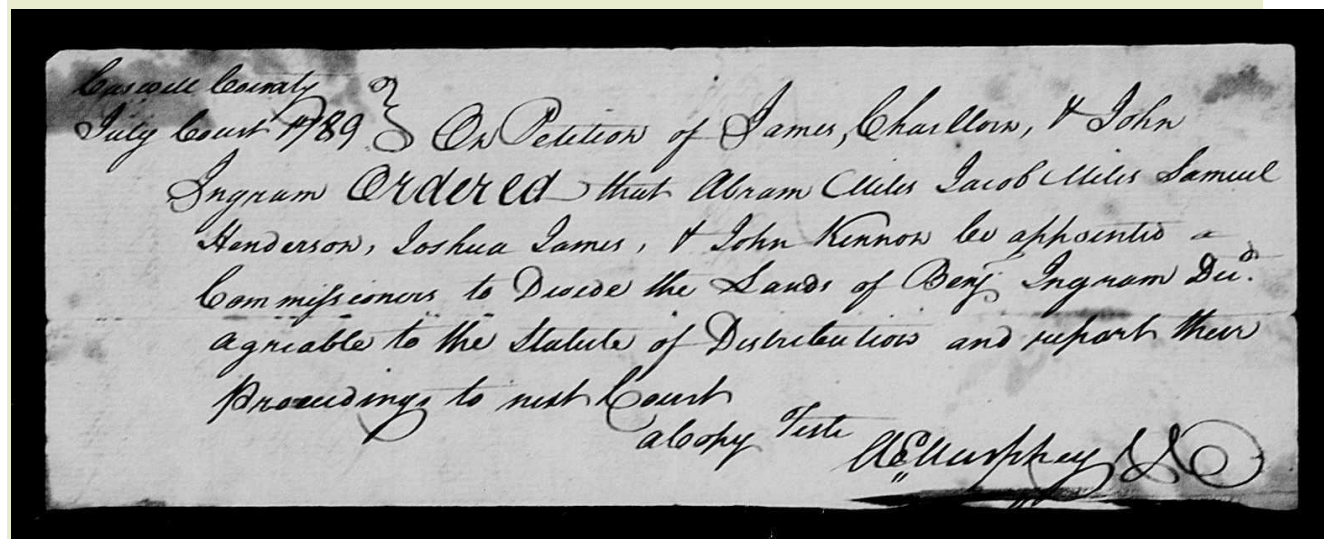 Caswell County
July Court 1789 } On Petition of James, Charllow, & John
Ingram Ordered that Abram Miles Jacob Miles Samuel
Henderson, Joshua James, & John Kennon be appointed a
Commissioners to Devide the Lands of Benj Ingram Decd.
agreable to the Statute of Distribution and report their
Proceedings to next Court
a Copy Teste
AE Murphey